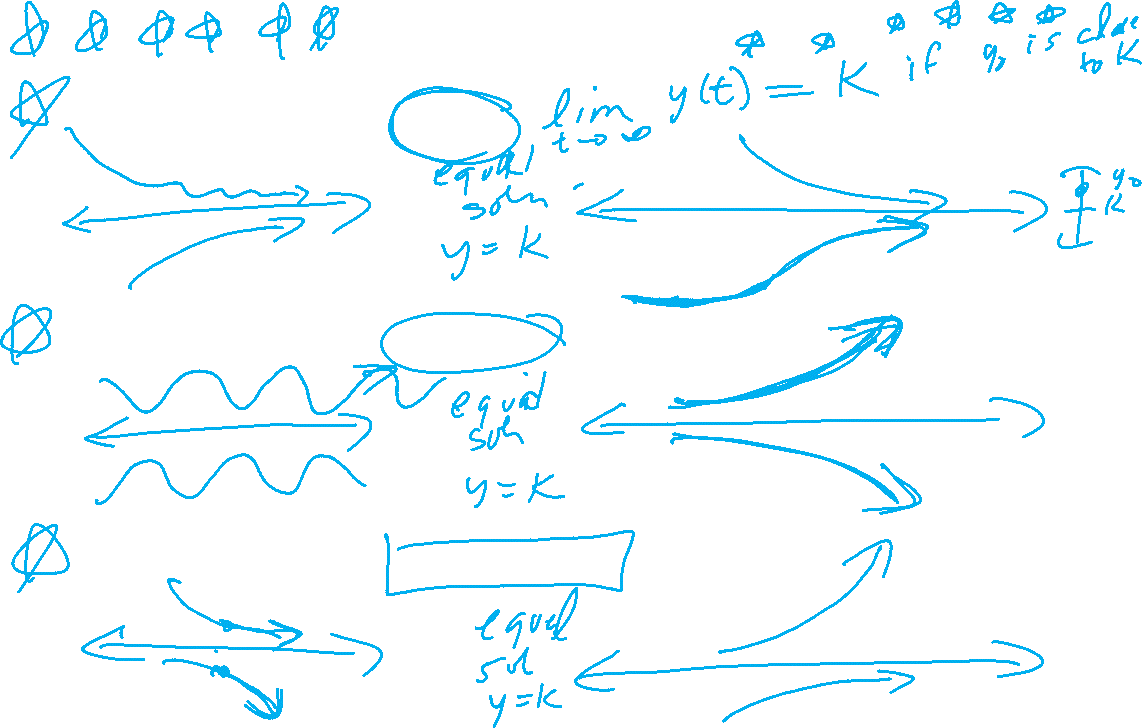 lim y(t) = K if y₀ is close to K
t→∞
equil
soln
y = K
y₀
K
equil
soln
y = K
equil
sol
y = K